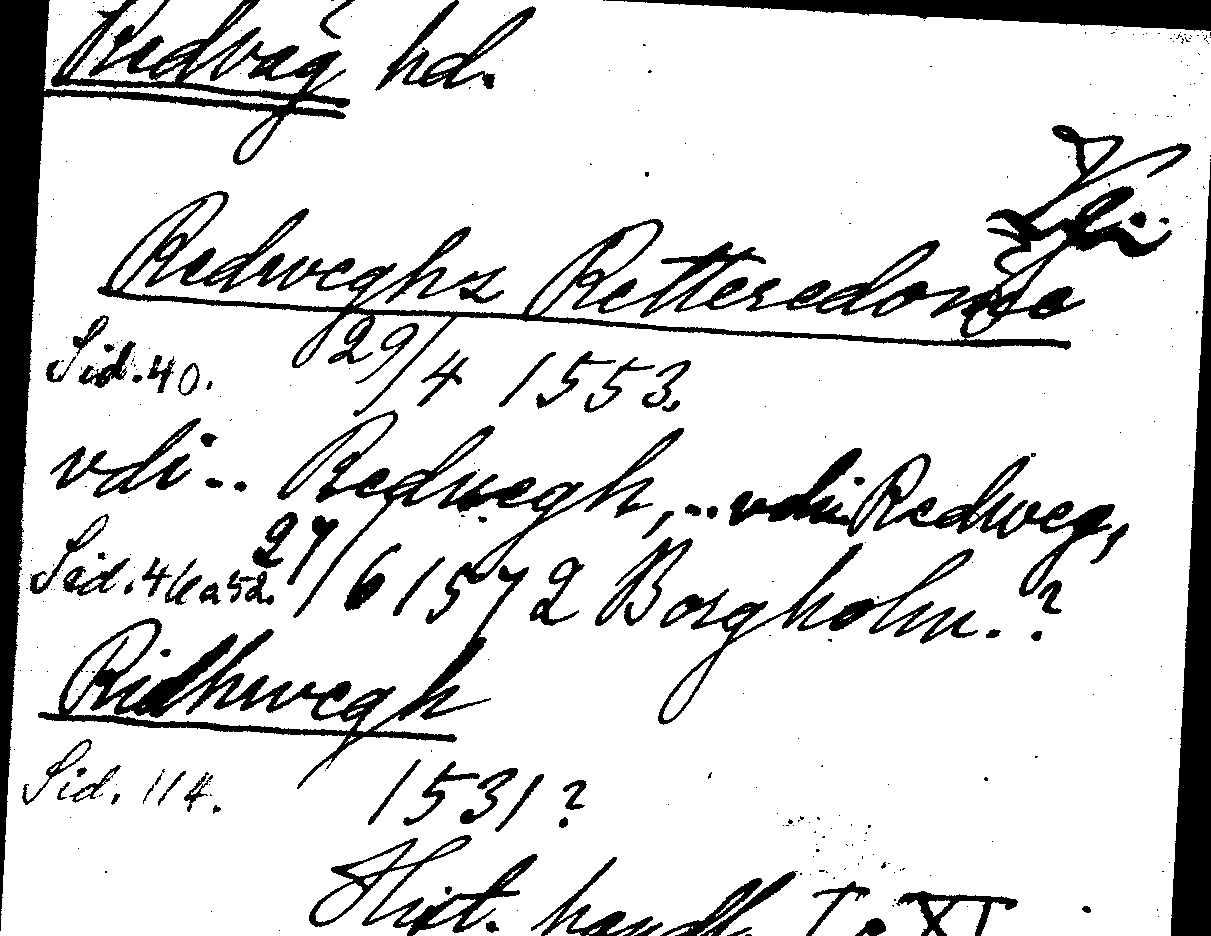 Redväg hd.
Vg.
Redweghs Retteredome
Sid. 40. 29/4 1553.
vdi .. Redwegh, .. vdi Redweg,
Sid. 46 a 52. 27/6 1572 Borgholm. ?
Ridhwegh
Sid. 114. 1531 ?
Hist. handl. I o XI